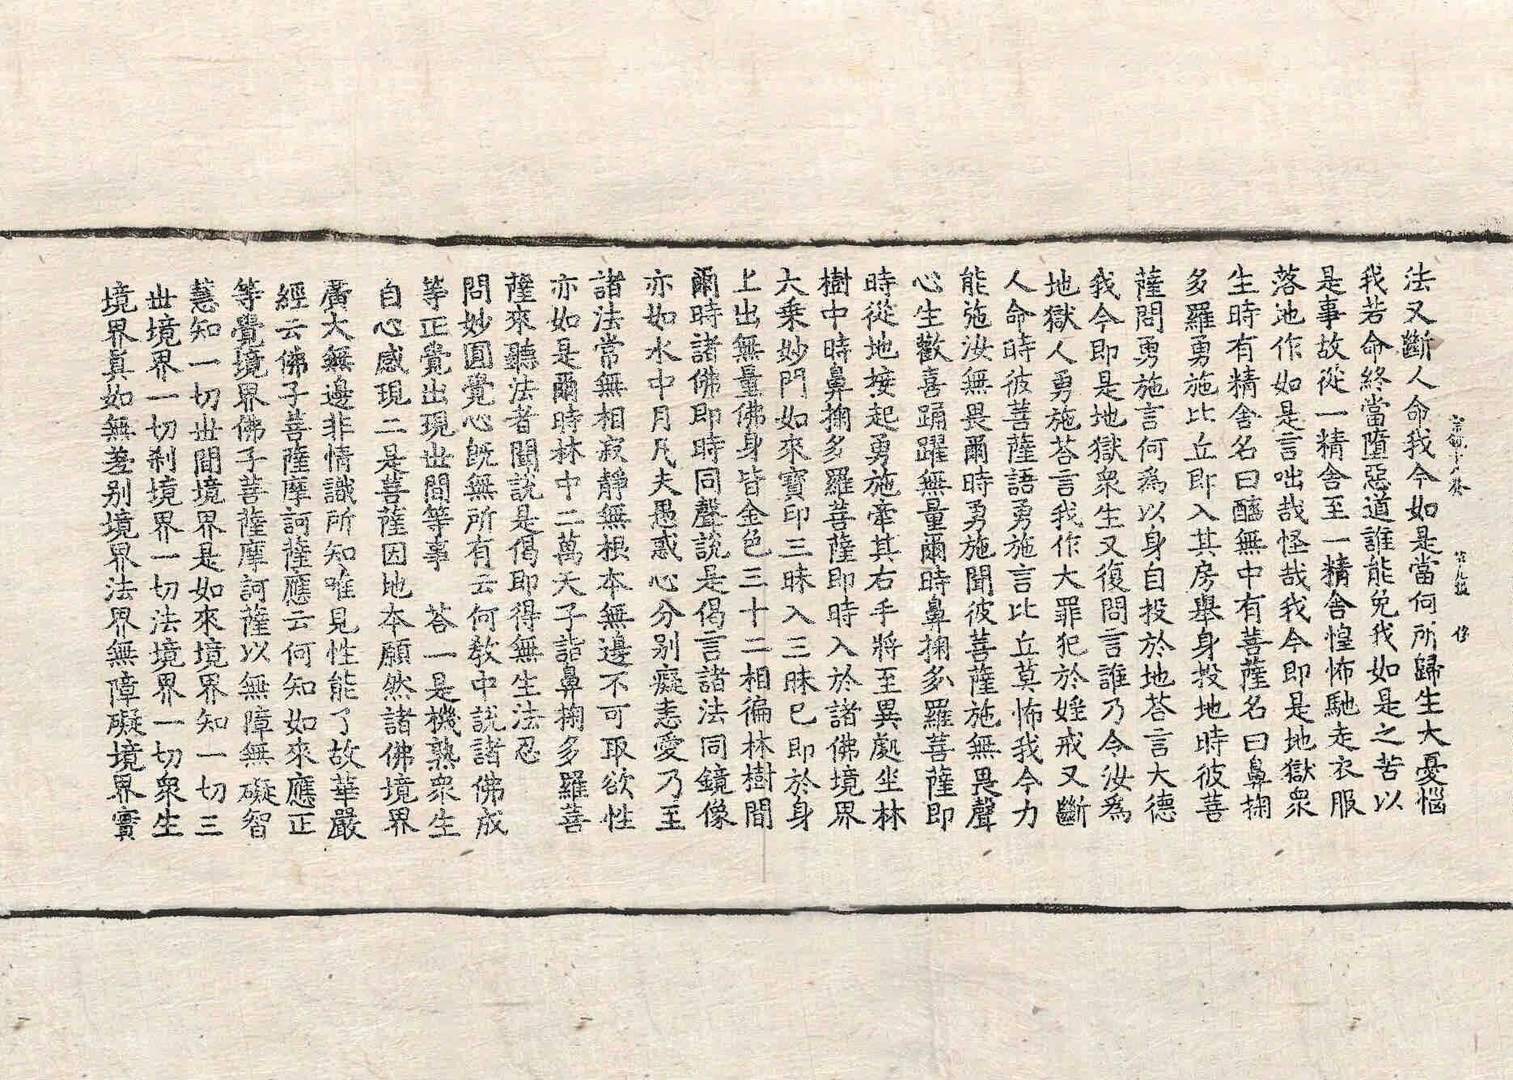 法又斷人命我今如是當何所歸生大憂惱
我若命終當墮惡道誰能免我如是之苦以
是事故從一精舍至一精舍惶怖馳走衣服
落地作如是言咄哉怪哉我今即是地獄衆
生時有精舍名曰醯無中有菩薩名曰鼻掬
多羅勇施比丘即入其房舉身投地時彼菩
薩問勇施言何為以身自投於地荅言大德
我今即是地獄衆生又復問言誰乃令汝為
地獄人勇施荅言我作大罪犯於婬戒又斷
人命時彼菩薩語勇施言比丘莫怖我今力
能施汝無畏爾時勇施聞彼菩薩施無畏聲
心生歡喜踊躍無量爾時鼻掬多羅菩薩即
時從地接起勇施牽其右手將至異處坐林
樹中時鼻掬多羅菩薩即時入於諸佛境界
大乗妙門如來寶印三昧入三昧已即於身
上出無量佛身皆金色三十二相徧林樹間
爾時諸佛即時同聲說是偈言諸法同鏡像
亦如水中月凡夫愚惑心分别癡恚愛乃至
諸法常無相寂靜無根本無邊不可取欲性
亦如是爾時林中二萬天子詣鼻掬多羅菩
薩來聽法者聞說是偈即得無生法忍
問妙圓覺心既無所有云何教中說諸佛成
等正覺出現世間等事　荅一是機熟衆生
自心感現二是菩薩因地本願然諸佛境界
廣大無邊非情識所知唯見性能了故華嚴
經云佛子菩薩摩訶薩應云何知如來應正
等覺境界佛子菩薩摩訶薩以無障無礙智
慧知一切世間境界是如來境界知一切三
世境界一切刹境界一切法境界一切衆生
境界真如無差别境界法界無障礙境界實